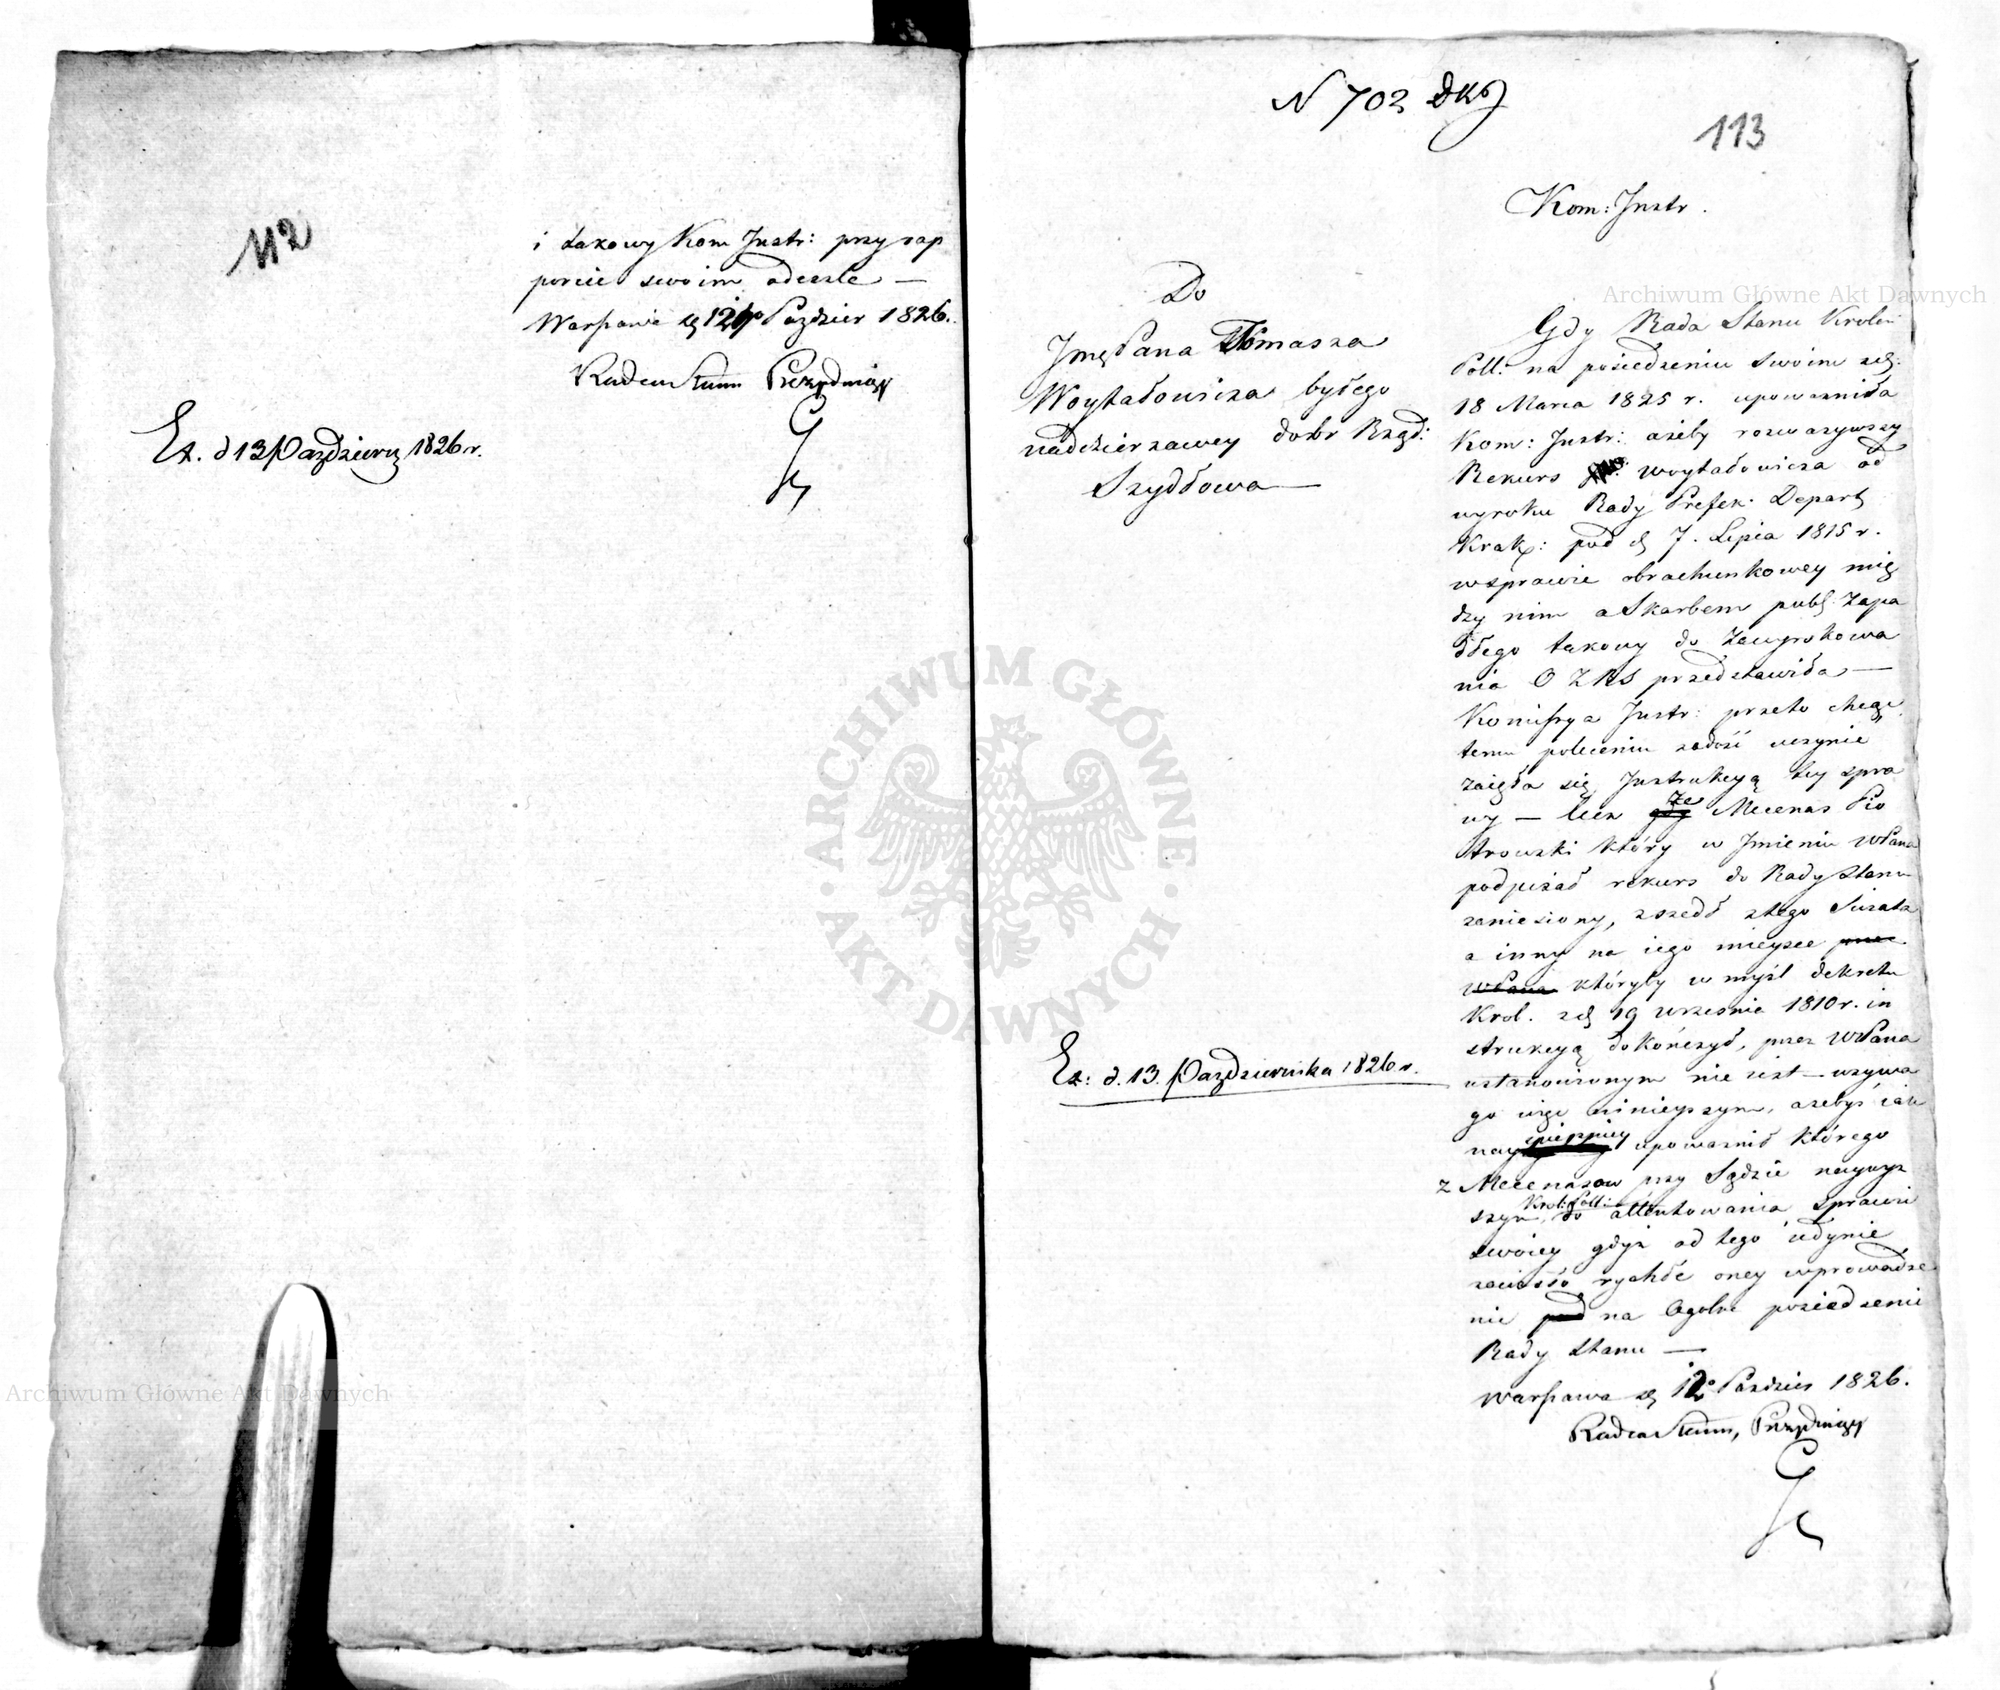 112
i takowy Kom Instr: przy rap
porcie swoim odeszle —
Warszawa d. 12go Paździer 1826.
Radca Stanu Prezyduiący
Ex. d 13 Październ 1826 r.
N 702 DKJ
113
Kom: Instr.
Do
Jmę Pana Tomasza
Woytałowicza byłego
naddzierzawcy dobr Rząd:
Szydłowa —
Ex: d. 13. Października 1826 r.
Gdy Rada Stanu Krole:
Poll: na posiedzeniu swoim zd:
18 Marca 1825 r. upoważniła
Kom: Instr: ażeby rozważywszy
Rekurs Woytałowicza od
wyroku Rady Prefek: Depart
Krak: pod d 7. Lipca 1815 r.
w sprawie obrachunkowey mię
dzy nim a Skarbem publ: zapa
dłego takowy do zawyrokowa
nia O Z R S przedstawiła —
Komissya Instr: przeto chcąc
temu poleceniu zadość uczynić
zaięła się Instrukcyą tey spra
wy — lecz że Mecenas Pio
trowski który w Imieniu WPana
podpisał rekurs do Rady Stanu
zaniesiony, zszedł z tego Świata
a inny na iego mieysce
któryby w myśl dekretu
Krol. z d 19 września 1810 r. in
strukcyą dokończył, przez WPana
ustanowionym nie iest — wzywa
go więc ninieyszym, ażebyś iak
nayspieszniey upoważnił którego
z Mecenasow przy Sądzie naywyż
szym Krol: Poll: do attentowania sprawie
swoiey gdyż od tego iedynie
zawisło rychłe oney wprowadze
nie na Ogolne posiedzenie
Rady Stanu —
Warszawa d. 12 Paździer 1826.
Radca Stanu, Prezyduiący
Archiwum Główne Akt Dawnych
ARCHIWUM GŁÓWNE · AKT DAWNYCH ·
Archiwum Główne Akt Dawnych